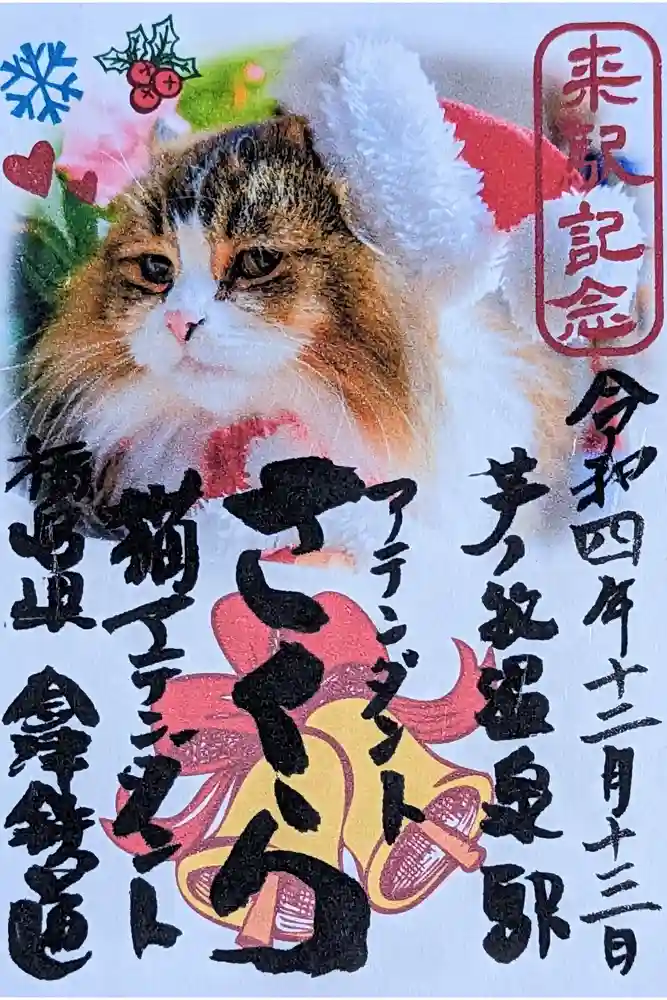 来駅記念
令和四年十二月十三日
芦ノ牧温泉駅
アテンダント
さくら
猫アテンダント
福島県 会津鉄道